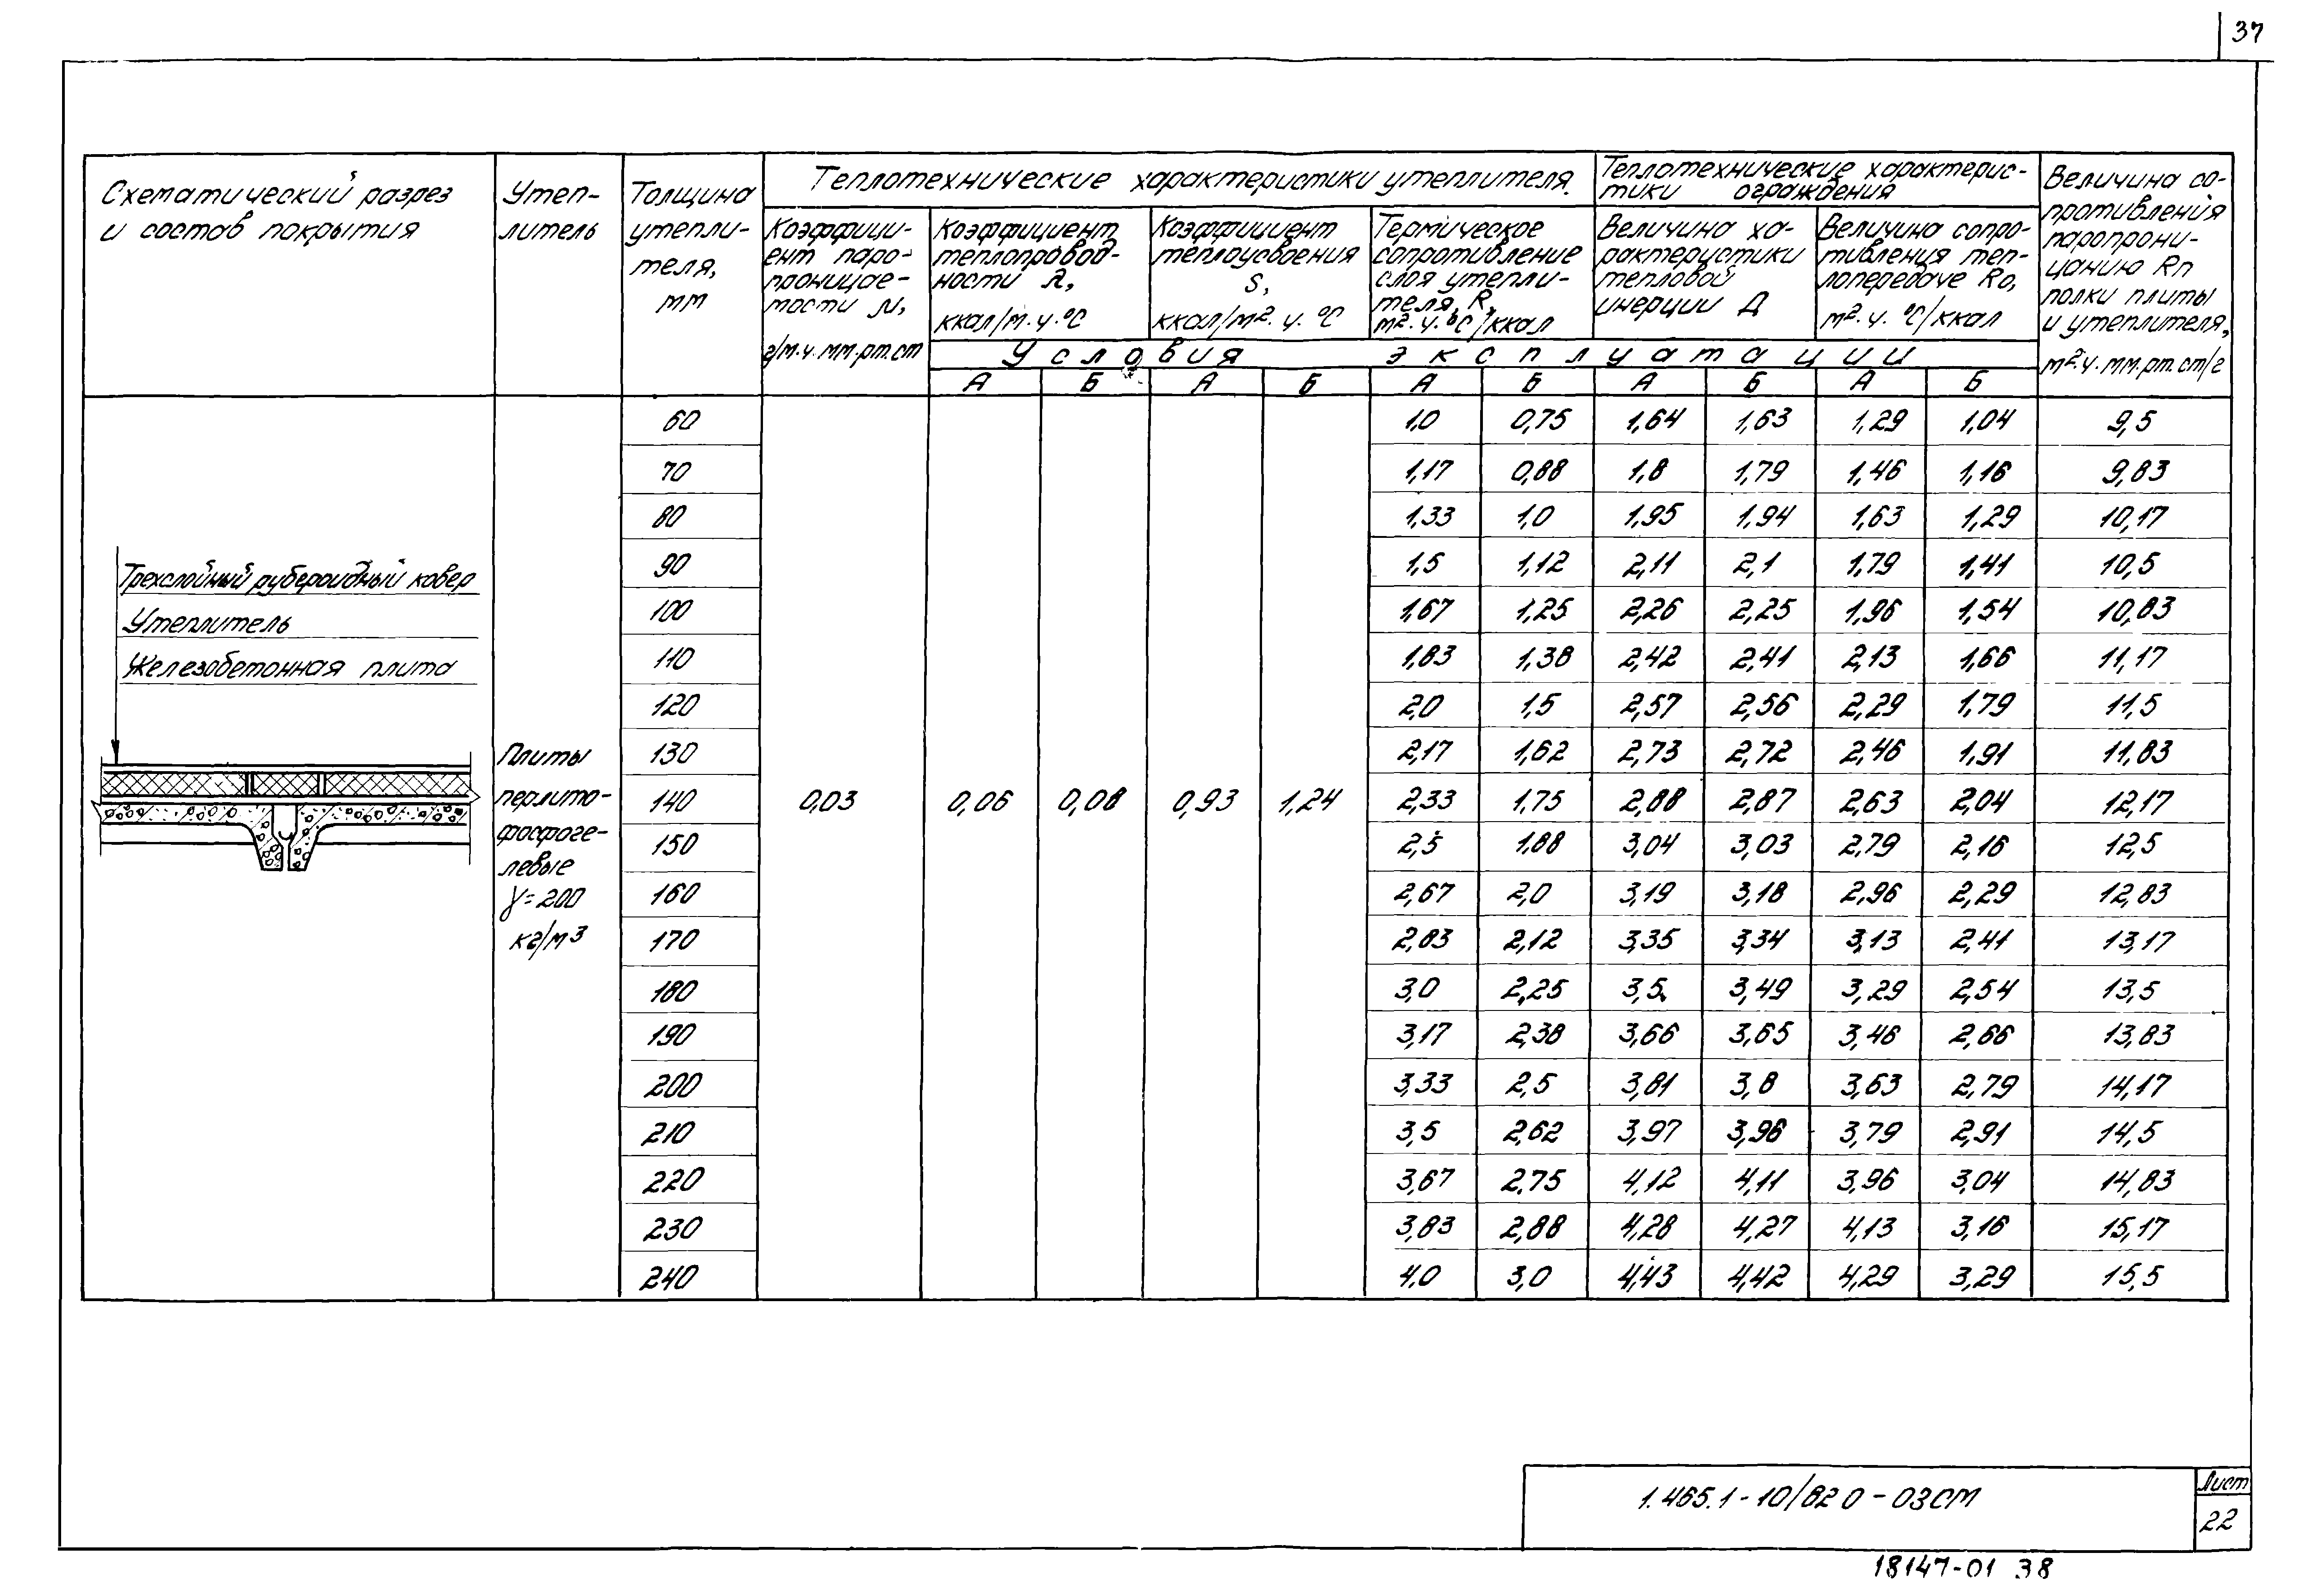 37
Схематический разрез
и состав покрытия
Утеп-
литель
Толщина
утепли-
теля,
мм
Теплотехнические характеристики утеплителя.
Теплотехнические характерис-
тики ограждения
Величина со-
противления
паропрони-
цанию Rп
полки плиты
и утеплителя,
м².ч.мм.рт.ст/г
Коэффици-
ент паро-
проницае-
мости μ,
г/м.ч.мм.рт.ст
Коэффициент
теплопровод-
ности λ,
ккал/м.ч.°С
Коэффициент
теплоусвоения
S,
ккал/м².ч.°С
Термическое
сопротивление
слоя утепли-
теля, R,
м².ч.°С/ккал
Величина ха-
рактеристики
тепловой
инерции Д
Величина сопро-
тивления теп-
лопередаче Rо,
м².ч.°С/ккал
Условия эксплуатации
А Б А Б А Б А Б А Б
60 1,0 0,75 1,64 1,63 1,29 1,04 9,5
70 1,17 0,88 1,8 1,79 1,46 1,16 9,83
80 1,33 1,0 1,95 1,94 1,63 1,29 10,17
90 1,5 1,12 2,11 2,1 1,79 1,41 10,5
100 1,67 1,25 2,26 2,25 1,96 1,54 10,83
110 1,83 1,38 2,42 2,41 2,13 1,66 11,17
120 2,0 1,5 2,57 2,56 2,29 1,79 11,5
130 2,17 1,62 2,73 2,72 2,46 1,91 11,83
140 0,03 0,06 0,08 0,93 1,24 2,33 1,75 2,88 2,87 2,63 2,04 12,17
150 2,5 1,88 3,04 3,03 2,79 2,16 12,5
160 2,67 2,0 3,19 3,18 2,96 2,29 12,83
170 2,83 2,12 3,35 3,34 3,13 2,41 13,17
180 3,0 2,25 3,5 3,49 3,29 2,54 13,5
190 3,17 2,38 3,66 3,65 3,46 2,66 13,83
200 3,33 2,5 3,81 3,8 3,63 2,79 14,17
210 3,5 2,62 3,97 3,96 3,79 2,91 14,5
220 3,67 2,75 4,12 4,11 3,96 3,04 14,83
230 3,83 2,88 4,28 4,27 4,13 3,16 15,17
240 4,0 3,0 4,43 4,42 4,29 3,29 15,5
Трехслойный рубероидный ковер
Утеплитель
Железобетонная плита
Плиты
перлито-
фосфоге-
левые
γ=200
кг/м³
1.465.1-10/82 0-03СМ
Лист
22
18147-01 38